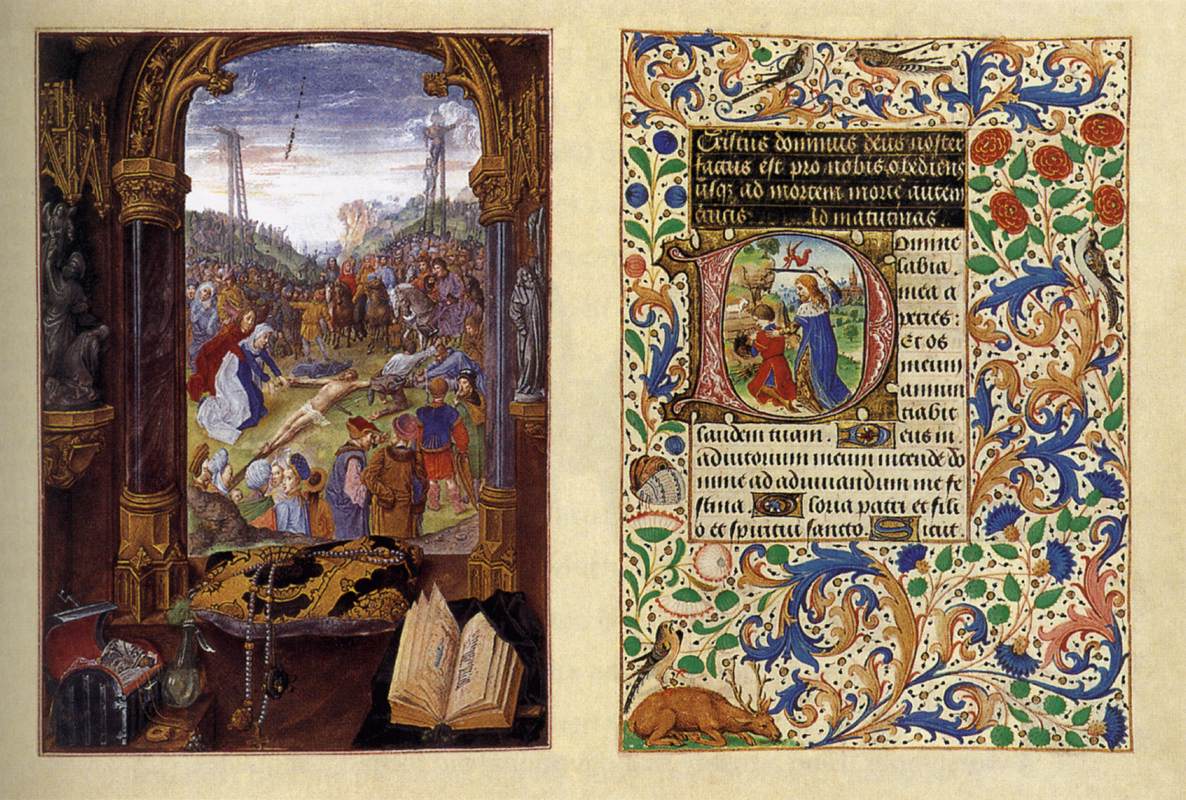 Cristus dominus deus noster
factus est pro nobis obediens
usq; ad mortem morte autem
crucis Ad matutinas
Domine
labia
mea a
peries:
Et os
meum
annun
tiabit
laudem tuam. Deus in
adiutorium meum intende do
mine ad adiuvandum me fe
stina Gloria patri et fili
o et spiritui sancto. Sicut